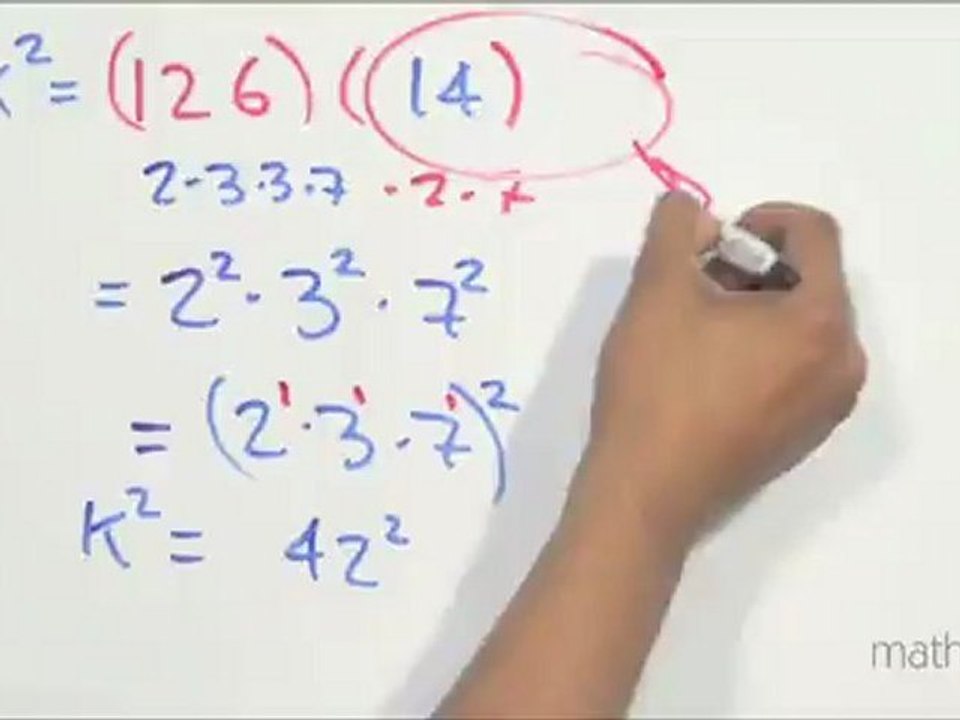 K² = (126)(14)
2·3·3·7 ·2·7
= 2²·3²·7²
= (2¹·3¹·7¹)²
K² = 42²
math